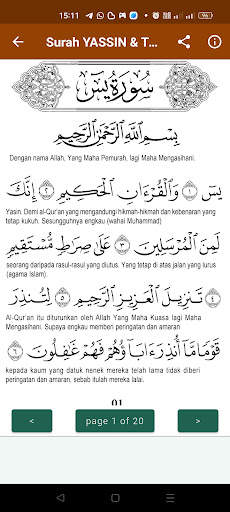 15:11
Surah YASSIN & T...
سُورَةُ يسٓ
بِسْمِ اللَّهِ الرَّحْمَٰنِ الرَّحِيمِ
Dengan nama Allah, Yang Maha Pemurah, lagi Maha Mengasihani.
يسٓ ١ وَالْقُرْءَانِ الْحَكِيمِ ٢ إِنَّكَ
Yasin. Demi al-Qur'an yang mengandungi hikmah-hikmah dan kebenaran yang
tetap kukuh. Sesungguhnya engkau (wahai Muhammad)
لَمِنَ الْمُرْسَلِينَ ٣ عَلَىٰ صِرَاطٍ مُّسْتَقِيمٍ ٤
seorang daripada rasul-rasul yang diutus. Yang tetap di atas jalan yang lurus
(agama Islam).
تَنزِيلَ الْعَزِيزِ الرَّحِيمِ ٥ لِتُنذِرَ
Al-Qur'an itu diturunkan oleh Allah Yang Maha Kuasa lagi Maha
Mengasihani. Supaya engkau memberi peringatan dan amaran
قَوْمًا مَّا أُنذِرَ ءَابَاؤُهُمْ فَهُمْ غَٰفِلُونَ ٦
kepada kaum yang datuk nenek mereka telah lama tidak diberi
peringatan dan amaran, sebab itulah mereka lalai.
01
< page 1 of 20 >